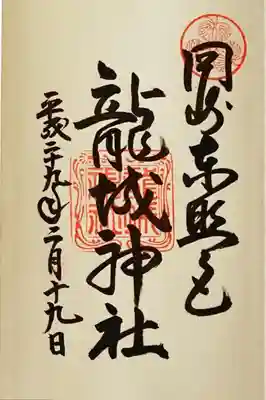 岡崎東照宮
龍城神社
平成二十九年二月十九日